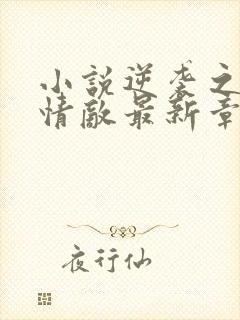 小說逆袭之
情敵最新章
夜行仙